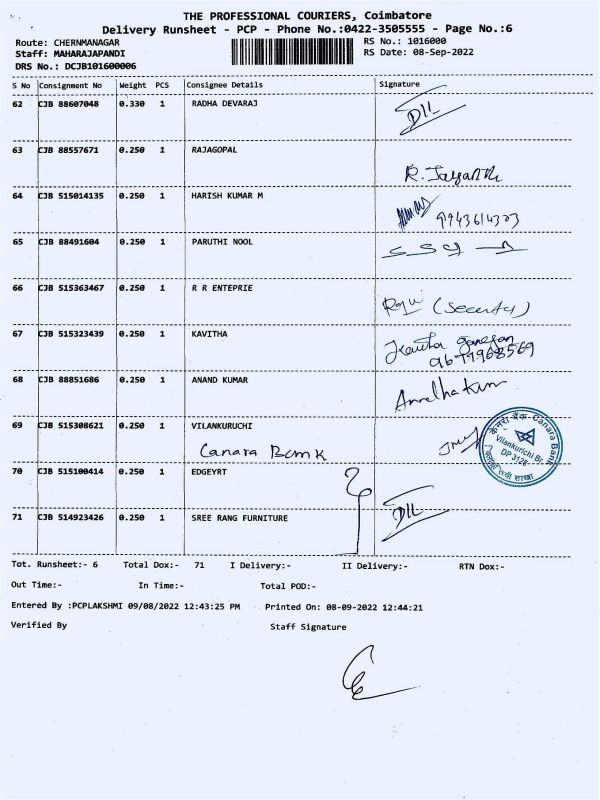 THE PROFESSIONAL COURIERS, Coimbatore
Delivery Runsheet - PCP - Phone No.:0422-3505555 - Page No.:6
Route: CHERNMANAGAR RS No.: 1016000
Staff: MAHARAJAPANDI RS Date: 08-Sep-2022
DRS No.: DCJB101600006
S No Consignment No Weight PCS Consignee Details Signature
62 CJB 88607048 0.330 1 RADHA DEVARAJ
63 CJB 88557671 0.250 1 RAJAGOPAL
R. Jayanthi
64 CJB 515014135 0.250 1 HARISH KUMAR M
65 CJB 88491604 0.250 1 PARUTHI NOOL
66 CJB 515363467 0.250 1 R R ENTEPRIE
Raju (Security)
67 CJB 515323439 0.250 1 KAVITHA
Kavitha Ganesan
9677968569
68 CJB 88851686 0.250 1 ANAND KUMAR
69 CJB 515308621 0.250 1 VILANKURUCHI
Canara Bank
केनरा बैंक Canara Bank
Vilankurichi Br.
DP 3126
70 CJB 515100414 0.250 1 EDGEYRT
71 CJB 514923426 0.250 1 SREE RANG FURNITURE
Tot. Runsheet:- 6 Total Dox:- 71 I Delivery:- II Delivery:- RTN Dox:-
Out Time:- In Time:- Total POD:-
Entered By :PCPLAKSHMI 09/08/2022 12:43:25 PM Printed On: 08-09-2022 12:44:21
Verified By Staff Signature